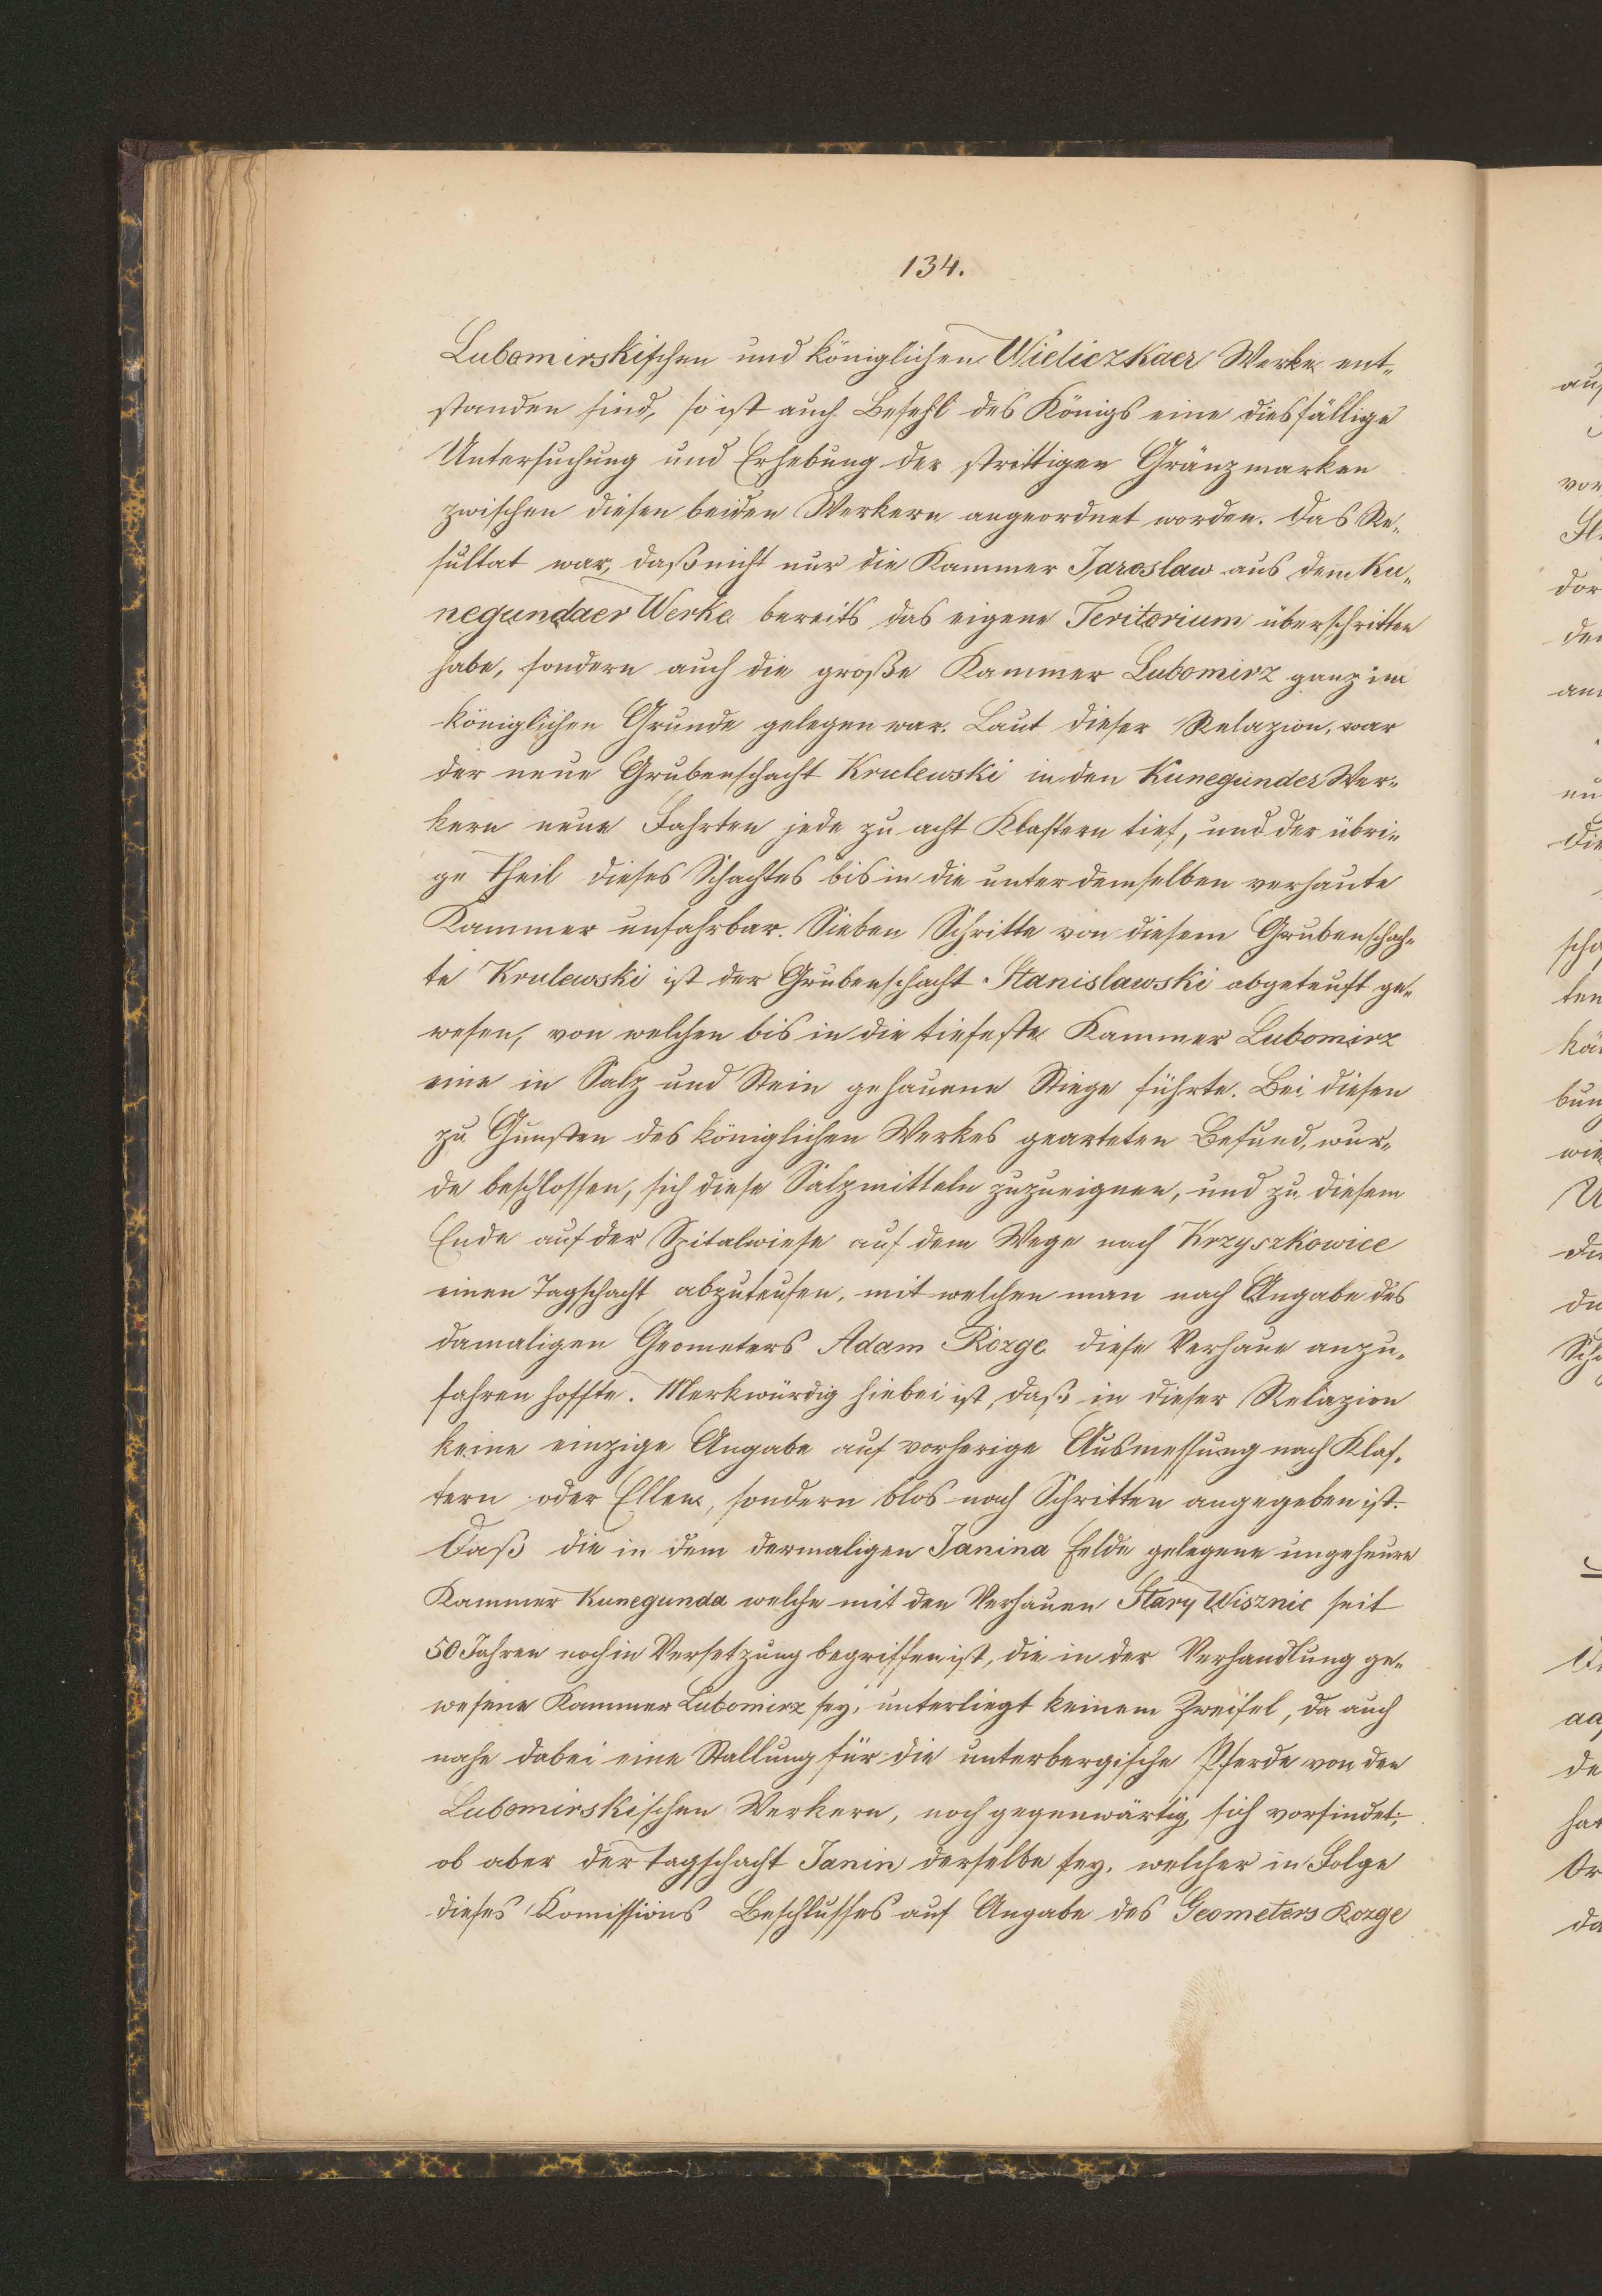 134.
Lubomirskischen und königlichen Wieliczkaer Werke ent-
standen sind, so ist auch Befehl des Königs eine diesfällige
Untersuchung und Erhebung der strittigen Gränzmarken
zwischen diesen beiden Werkern angeordnet worden. Das Re-
sultat war, daß nicht nur die Kammer Jaroslaw aus dem Ku-
negundaer Werke bereits das eigene Teritorium überschritten
habe, sondern auch die große Kammer Lubomirz ganz im
königlichen Grunde gelegen war. Laut dieser Relazion, war
der neue Grubenschacht Krulewski in den Kunegunder Wer-
kern neue Fahrten jede zu acht Klaftern tief, und der übri-
ge Theil dieses Schachtes bis in die unter demselben verhaute
Kammer unfahrbar. Sieben Schritte von diesem Grubenschach-
te Krulewski ist der Grubenschacht Stanislawski abgeteuft ge-
wesen, von welchen bis in die tiefeste Kammer Lubomirz
eine in Salz und Stein gehauene Stiege führte. Bei diesen
zu Gunsten des königlichen Werkes gearteten Befund, wur-
de beschlossen, sich diese Salzmitteln zuzueignen, und zu diesem
Ende auf der Spitalwiese auf dem Wege nach Krzyszkowice
einen Tagschacht abzuteufen, mit welchen man nach Angabe des
damaligen Geometers Adam Rozge diese Verhaue anzu-
fahren hoffte. Merkwürdig hiebei ist, daß in dieser Relazion
keine einzige Angabe auf vorherige Ausmessung nach Klaf-
tern oder Ellen, sondern blos nach Schritten angegeben ist.
Daß die in dem dermaligen Janina Felde gelegene ungeheure
Kammer Kunegunda welche mit den Verhauen Stary Wisznic seit
50 Jahren noch in Versetzung begriffen ist, die in der Verhandlung ge-
wesene Kammer Lubomirz sey, unterliegt keinem Zweifel, da auch
nahe dabei eine Stallung für die unterbergische Pferde von den
Lubomirskischen Werkern, noch gegenwärtig sich vorfindet;
ob aber der Tagschacht Janin derselbe sey, welcher in Folge
dieses Komissions Beschlusses auf Angabe des Geometers Rozge